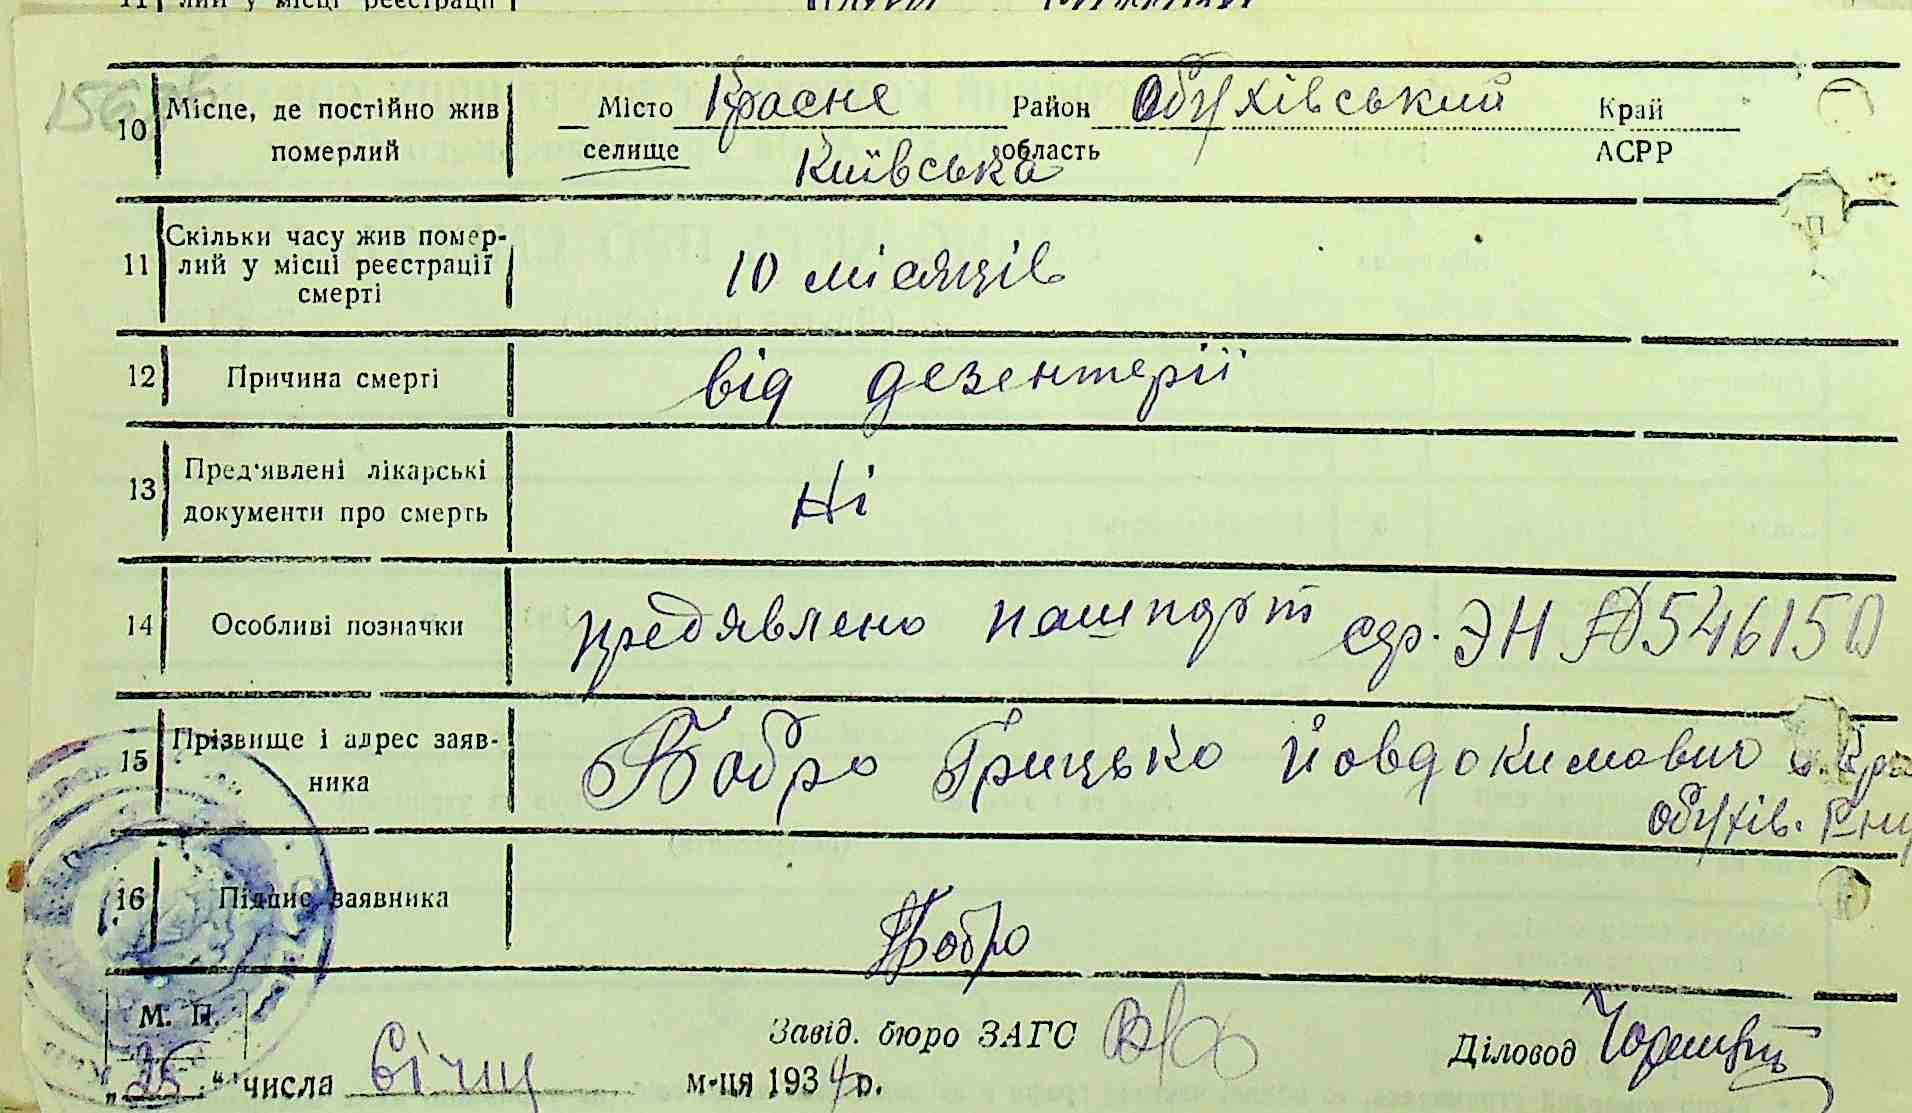 10 Місце, де постійно жив померлий
Місто Красне Район Обухівський Край
селище Київська область АСРР
11 Скільки часу жив помер-
лий у місці реєстрації
смерті
10 місяців
12 Причина смерті від дезентерії
13 Пред'явлені лікарські
документи про смерть
Ні
14 Особливі позначки предявлено пашпорт сер. ЭН № 546150
15 Прізвище і адрес заяв-
ника
Бобро Грицько Йовдокимович с. Кра
обухів. р-ну
16 Підпис заявника Бобро
М. П. Завід. бюро ЗАГС Діловод
„ 26 " числа Січня м-ця 1934 р.